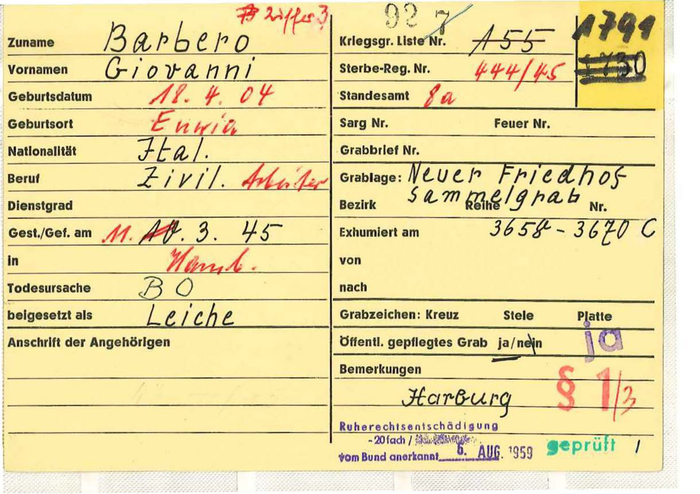 92 7
1791
Zuname Barbero
Kriegsgr. Liste Nr. 155
1730
Vornamen Giovanni
Sterbe-Reg. Nr. 444/45
Geburtsdatum 18. 4. 04
Standesamt 8a
Geburtsort
Sarg Nr. Feuer Nr.
Nationalität Ital.
Grabbrief Nr.
Beruf Zivil. Arbeiter
Grablage: Neuer Friedhof
Sammelgrab
Dienstgrad
Bezirk Reihe Nr.
Gest./Gef. am 11. 10. 3. 45
Exhumiert am 3658 - 3670 C
in Hamb.
von
Todesursache BO
nach
beigesetzt als Leiche
Grabzeichen: Kreuz Stele Platte
Anschrift der Angehörigen
Öffentl. gepflegtes Grab ja/nein ja
Bemerkungen
§ 1/3
Harburg
Ruherechtsentschädigung
- 20fach /
vom Bund anerkannt 6. AUG. 1959
geprüft